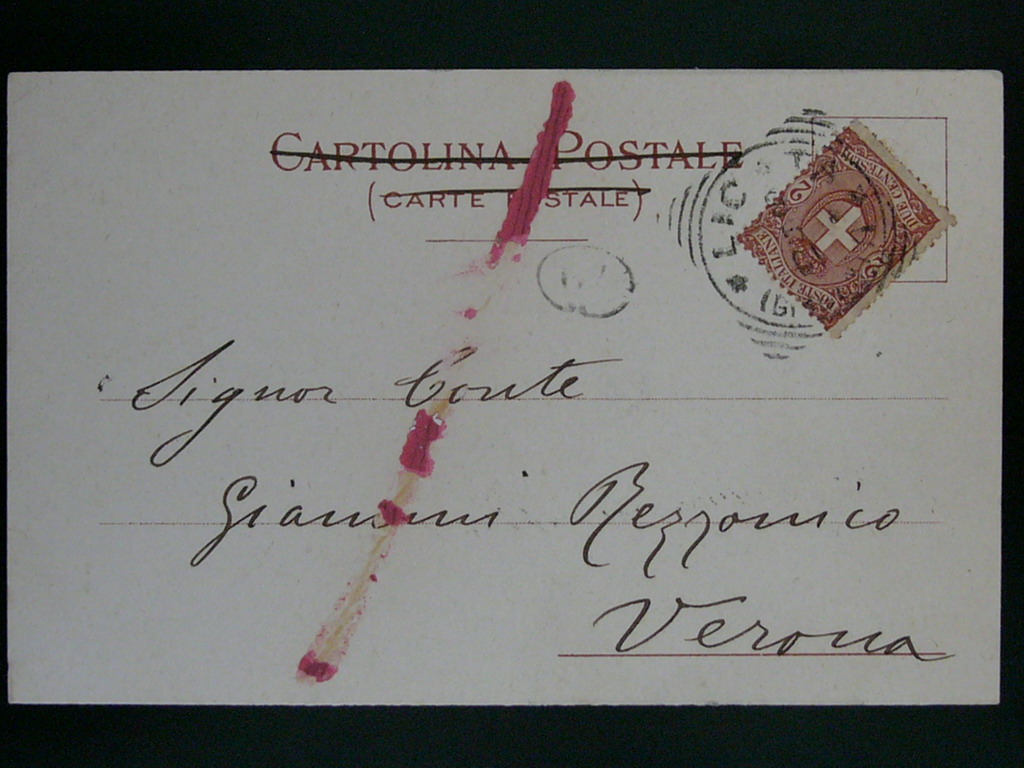 CARTOLINA POSTALE
(CARTE POSTALE)
POSTE ITALIANE
DUE CENTESIMI
2
2
Signor Conte
Gianmini Rezzonico
Verona